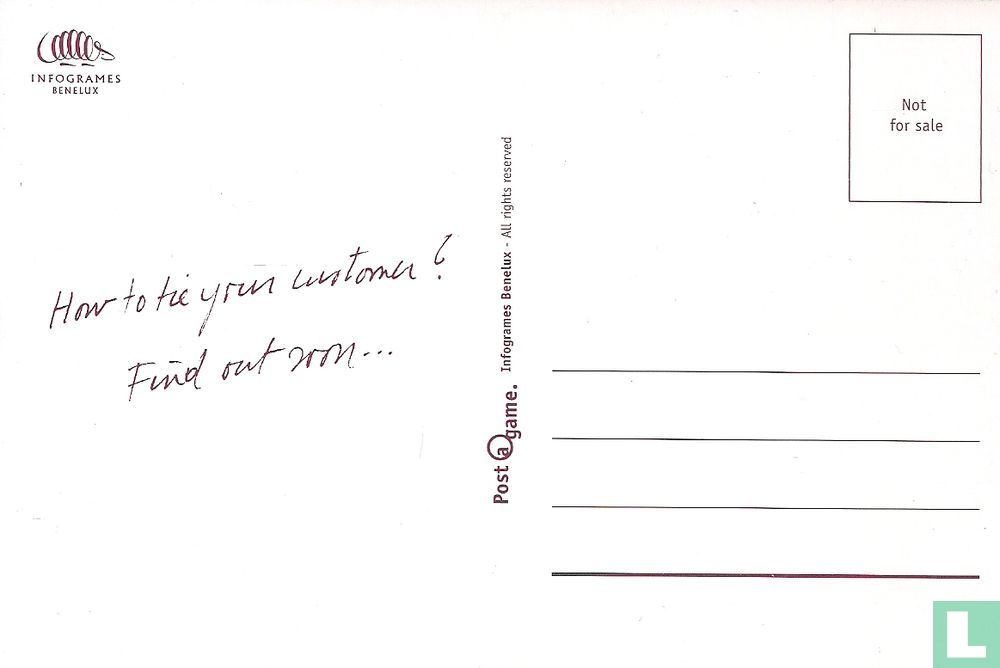 INFOGRAMES
BENELUX
How to tie your customer?
Find out soon...
Post @game. Infogrames Benelux - All rights reserved
Not
for sale
L